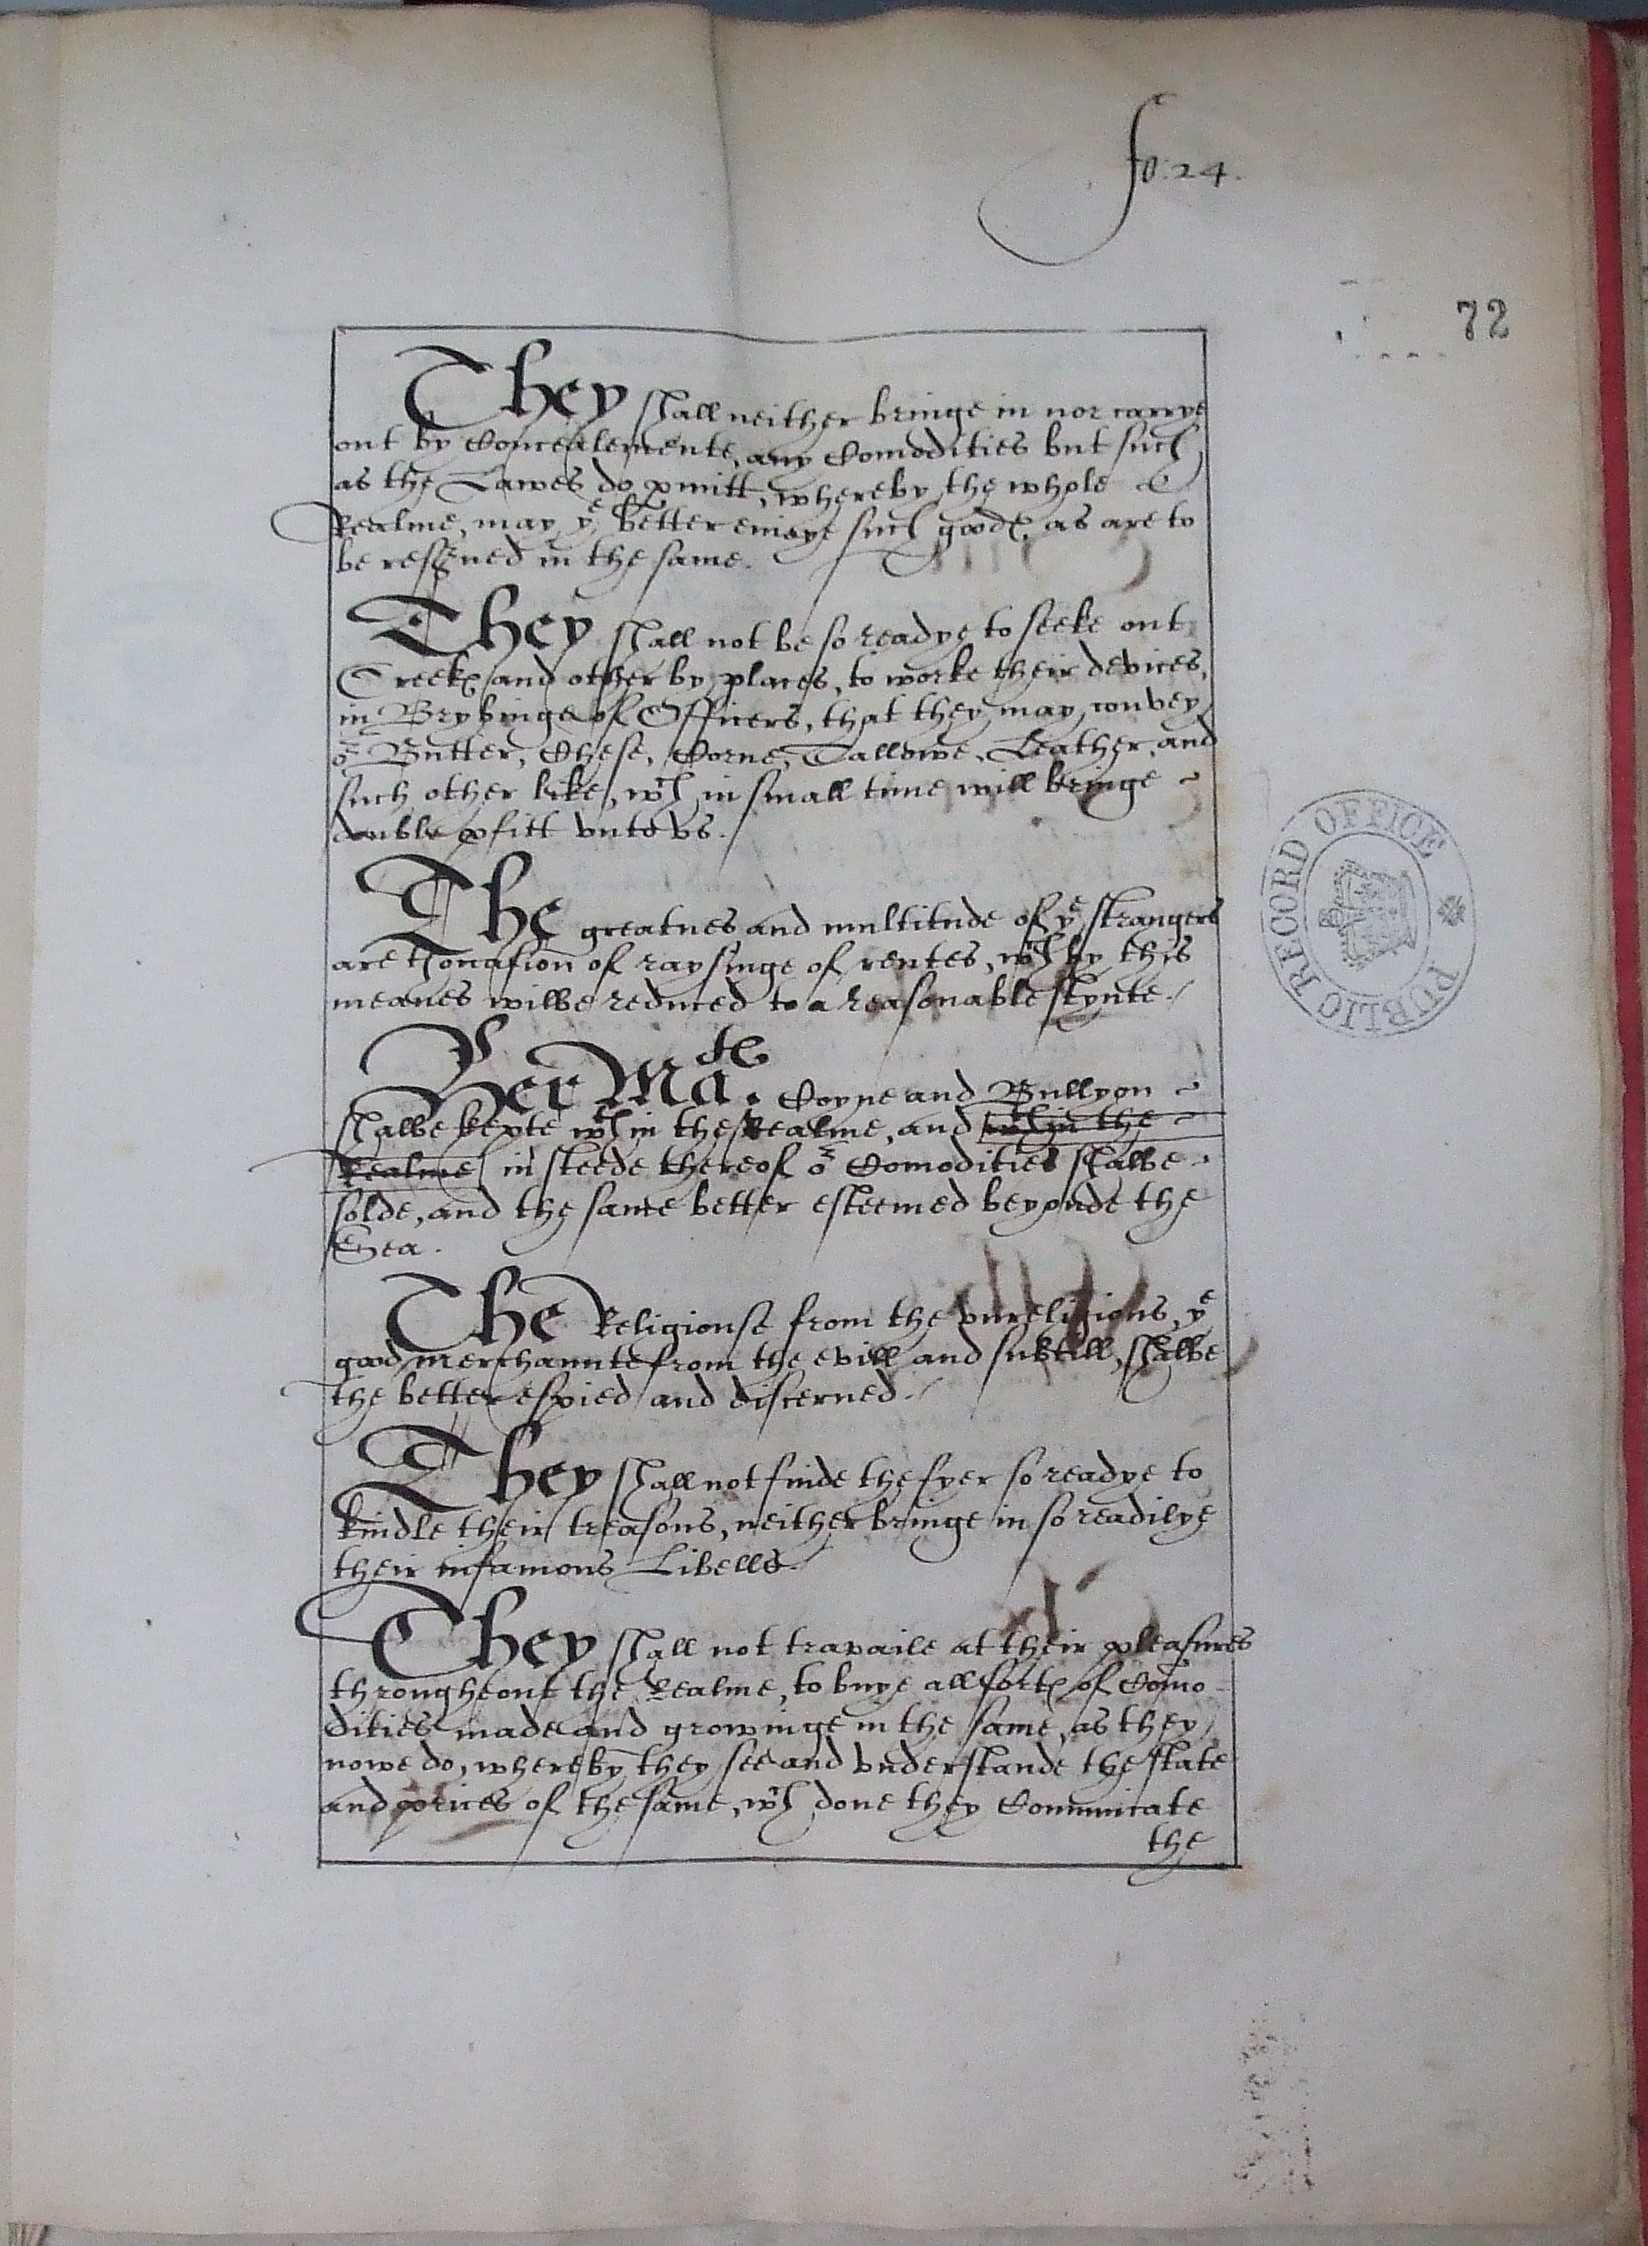 fo: 24.
72
They shall neither bringe in nor carrye
out by Concealemente, any Comodities but such
as the Lawes do pmitt, whereby the whole
Realme, may yͤ better enioye such goodꝭ, as are to
be resrued in the same.
They shall not be so readye to seeke out
Creekꝭ and other by places, to worke their devices,
in Brybinge of Officers, that they may convey
oʳ Butter, Chese, Corne, Tallowe, Leather, and
such other like, wᶜʰ in small time will bringe
double pfitt vnto vs.
The greatnes and multitude of yͤ strangers
are thonasion of raysinge of rentes, wᶜʰ by this
meanes wilbe reduced to a reasonable stynte.
Her Maᵗⁱᵉ. Coyne and Bullyon
shalbe kepte wᵗʰin the Realme, and wᵗʰin the
Realme in steede thereof oʳ Comodities shalbe
solde, and the same better esteemed beyonde the
Sea.
The Religiouse from the vnreligious, yͤ
good merchaunte from the evill and subtill, shalbe
the better espied and discerned.
They shall not finde the fyer so readye to
kindle their treasons, neither bringe in so readilye
their infamous Libells.
They shall not travaile at their pleasures
througheout the Realme, to buye all sortꝭ of Como-
dities made and growinge in the same, as they
nowe do, whereby they see and vnderstande the state
and prices of the same, wᶜʰ done they Comunicate
the
PUBLIC RECORD OFFICE